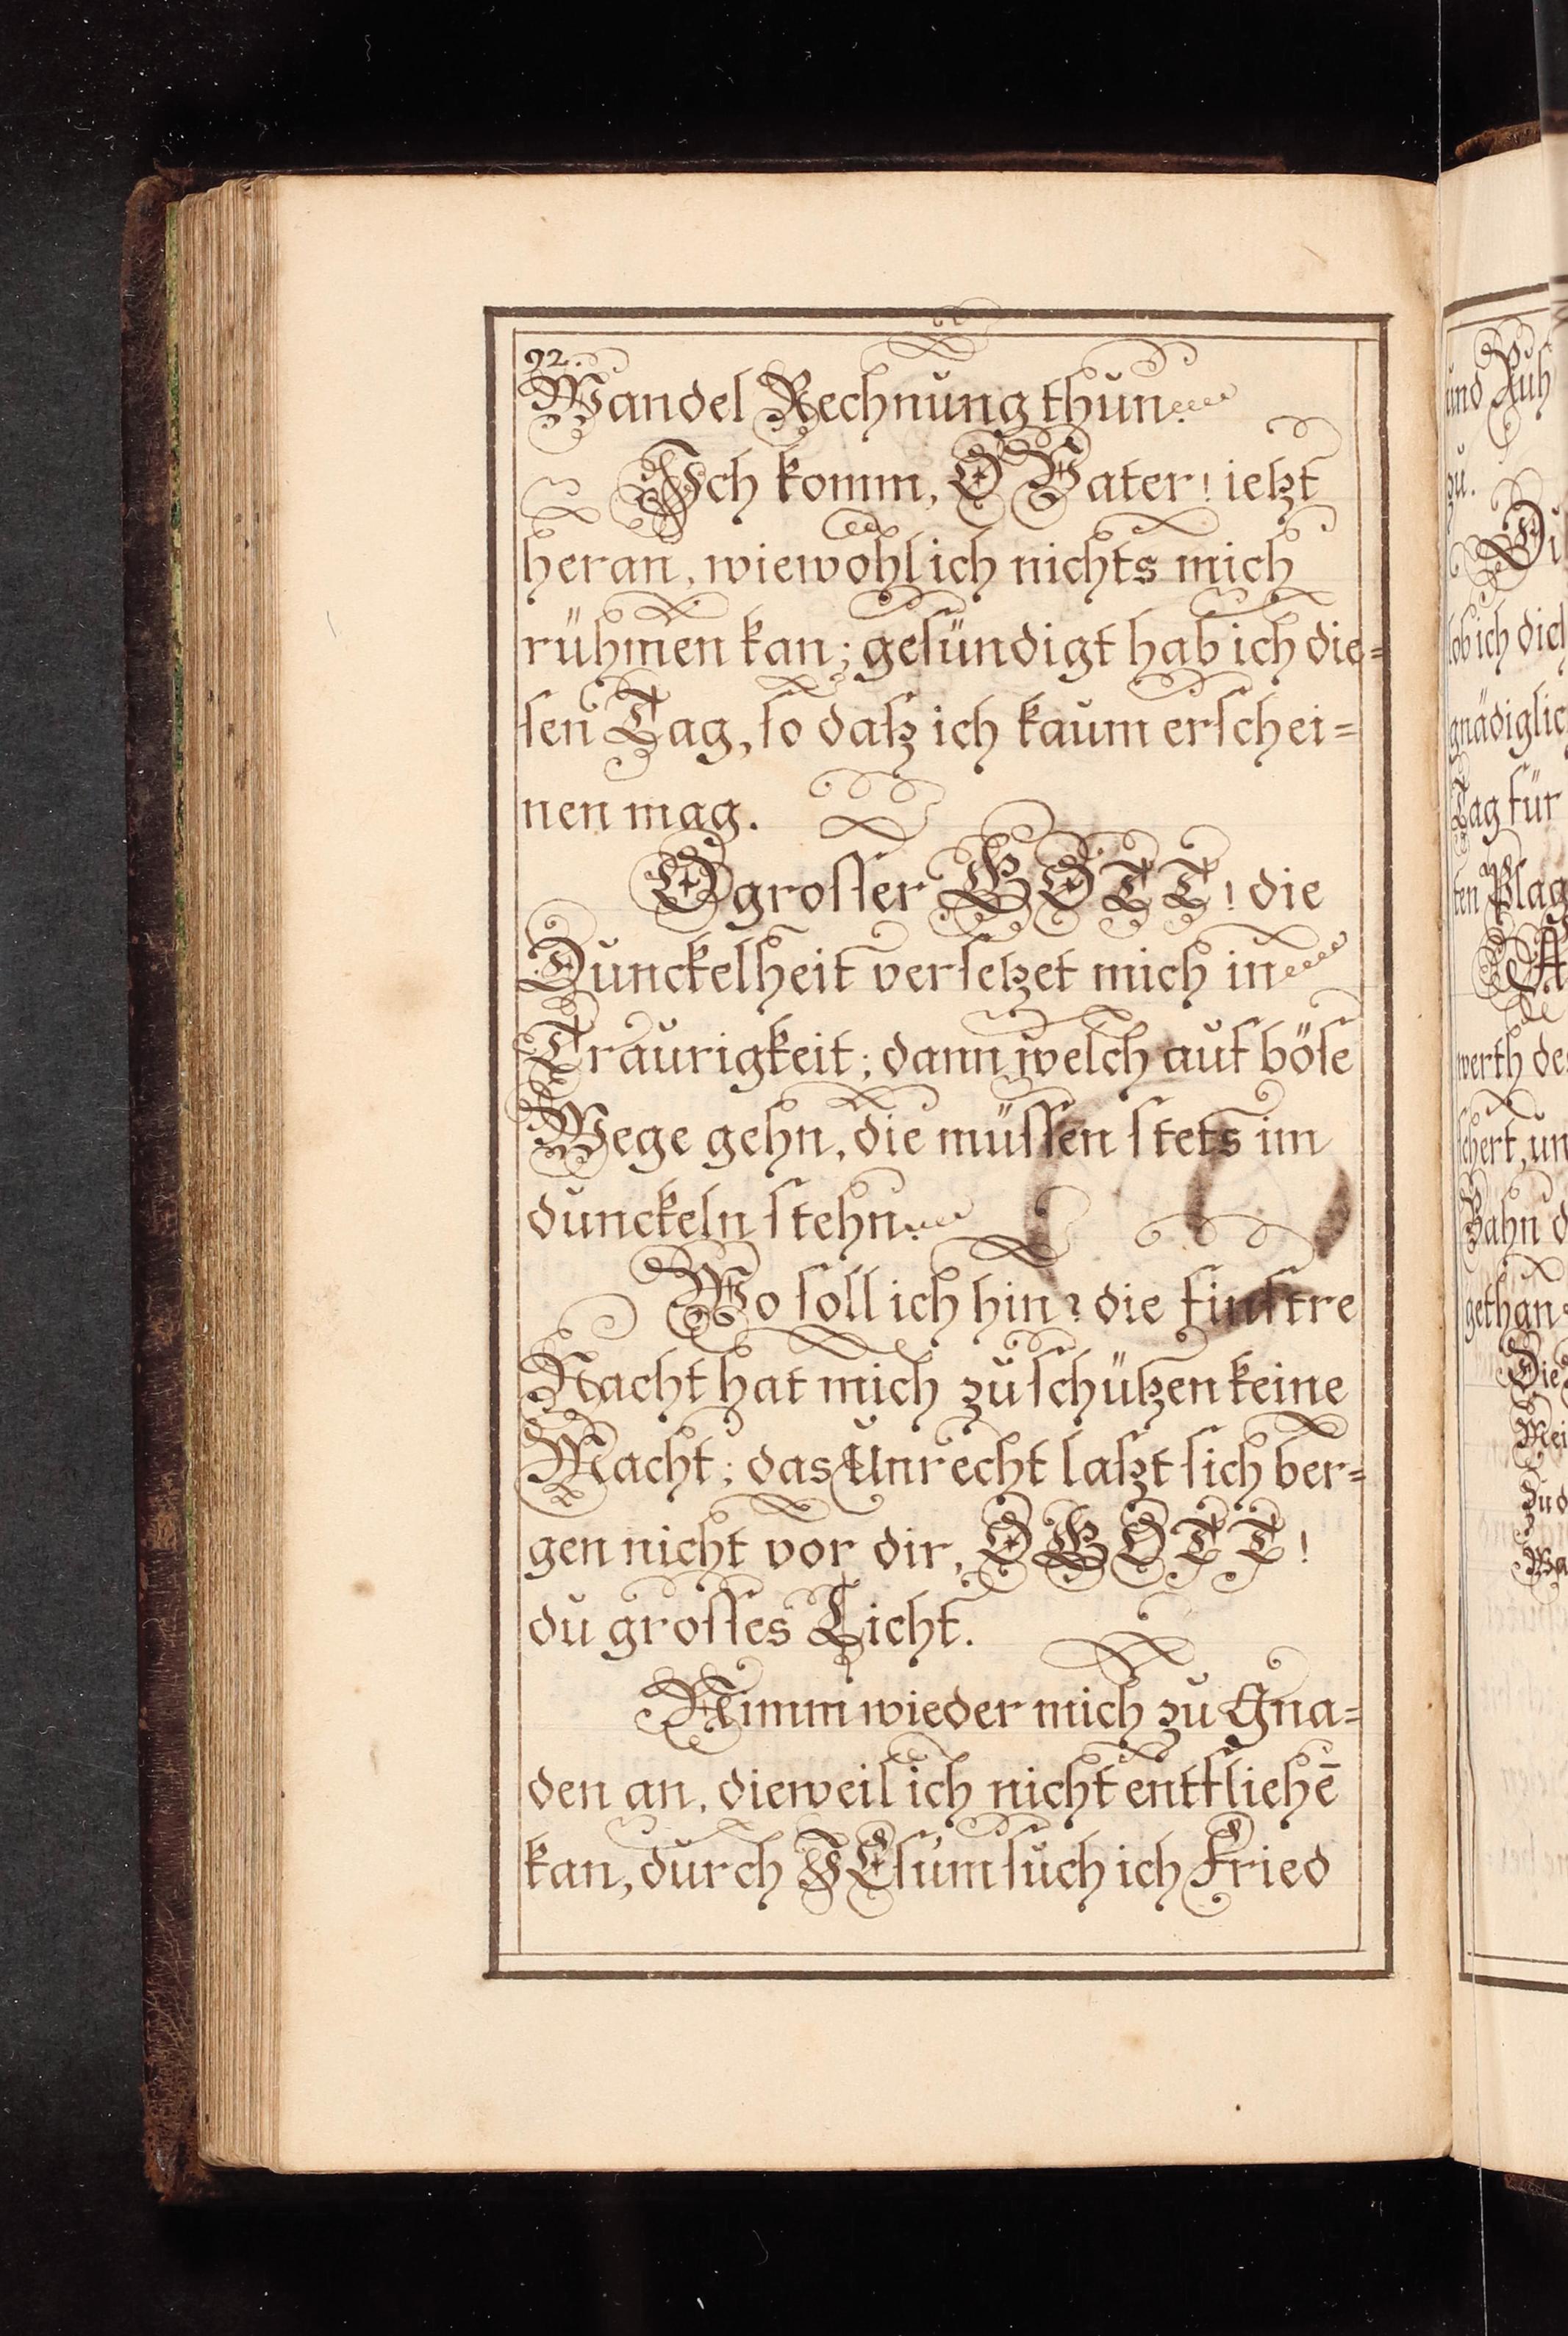 92.
Wandel Rechnung thun.
Ich komm, O Vater! ietzt
heran, wiewohl ich nichts mich
rühmen kan; gesündigt hab ich die=
sen Tag, so daß ich kaum erschei=
nen mag.
O grosser GOTT! die
Dunckelheit versetzet mich in
Traurigkeit; dann welch auf böse
Wege gehn, die müssen stets im
dunckeln stehn.
Wo soll ich hin? die finstre
Nacht hat mich zu schützen keine
Macht; das Unrecht laßt sich ber=
gen nicht vor dir, O GOTT!
du grosses Licht.
Nimm wieder mich zu Gna=
den an, dieweil ich nicht entfliehē
kan, durch JEsum such ich Fried
und Ruh
zu.
lob ich dich
gnädiglic
Tag für
ten Plag
werth de
schert, un
Bahn d
gethan
Die
Mei